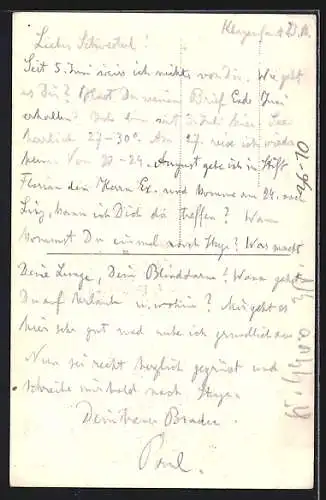 Klagenfurt 23.
Liebes Schwesterl!
Seit 5. Juni weiss ich nichts von Dir. Wie geht
es Dir? Hast Du meinen Brief Ende Juni
erhalten? Ich bin seit 3. Juli hier. See
herrlich 27-30°. Am 27. reise ich wieder
heim. Vom 20-24. August gebe ich in Stift
Florian den Herrn Ex. und komme am 24. nach
Linz, kann ich Dich da treffen? Wann
kommst Du einmal nach Steyr? Was macht
Deine Lunge, Dein Blinddarm? Wann gehst
Du auf Urlaub u. wohin? Mir geht es
hier sehr gut und ruhe ich gründlich aus
Nun sei recht herzlich gegrüsst und
schreibe mir bald nach Steyr.
Dein treuer Bruder
Paul.